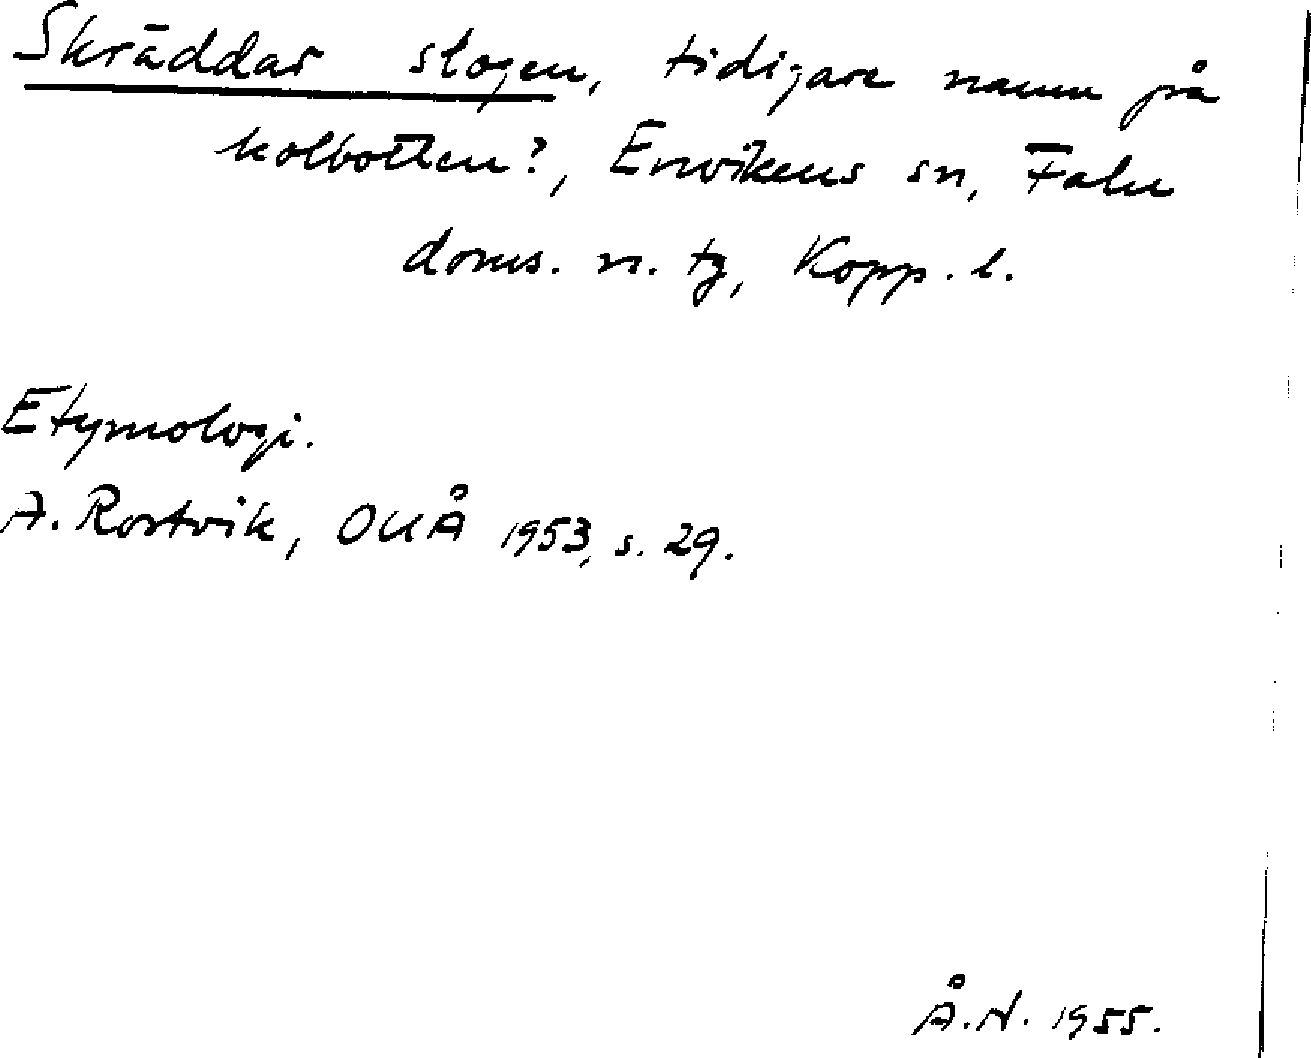 Skräddar slogen, tidigare namn på
kolbotten?, Envikens sn, Falu
doms. n. tg, Kopp. l.
Etymologi.
A. Rostvik, OUÅ 1953, s. 29.
Å.N. 1955.